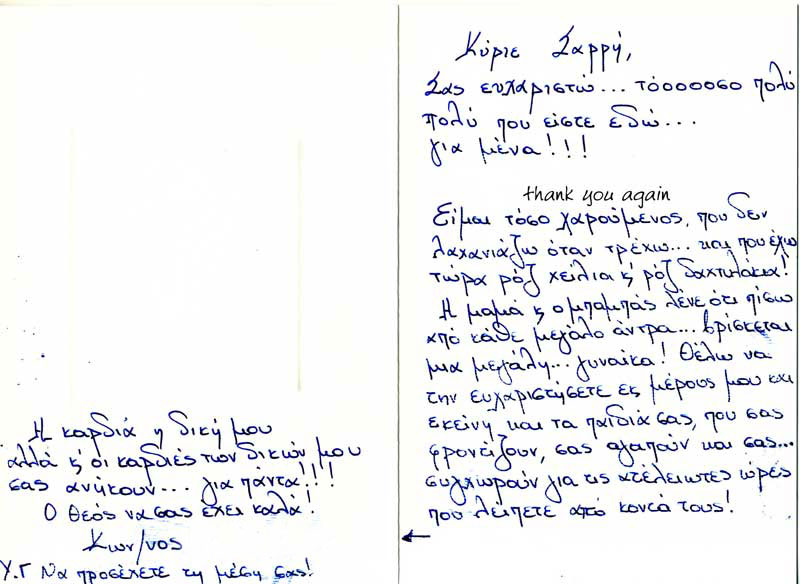 Κύριε Σαρρή,
Σας ευχαριστώ... τόοοοοσο πολύ
πολύ που είστε εδώ...
για μένα!!!
thank you again
Είμαι τόσο χαρούμενος, που δεν
λαχανιάζω όταν τρέχω... και που έχω
τώρα ρόζ χείλια κ' ρόζ δαχτυλάκια!
Η μαμά κ ο μπαμπάς λένε ότι πίσω
από κάθε μεγάλο άντρα... βρίσκεται
μια μεγάλη... γυναίκα! Θέλω να
την ευχαριστήσετε εκ μέρους μου και
εκείνη και τα παιδιά σας, που σας
φροντίζουν, σας αγαπούν και σας...
συγχωρούν για τις ατέλειωτες ώρες
που λείπετε από κοντά τους!
Η καρδιά η δική μου
αλλά κ' οι καρδιές των δικών μου
σας ανήκουν... για πάντα!!!
Ο Θεός να σας έχει καλά!
Κων/νος
Υ.Γ Να προσέχετε τη μέση σας!